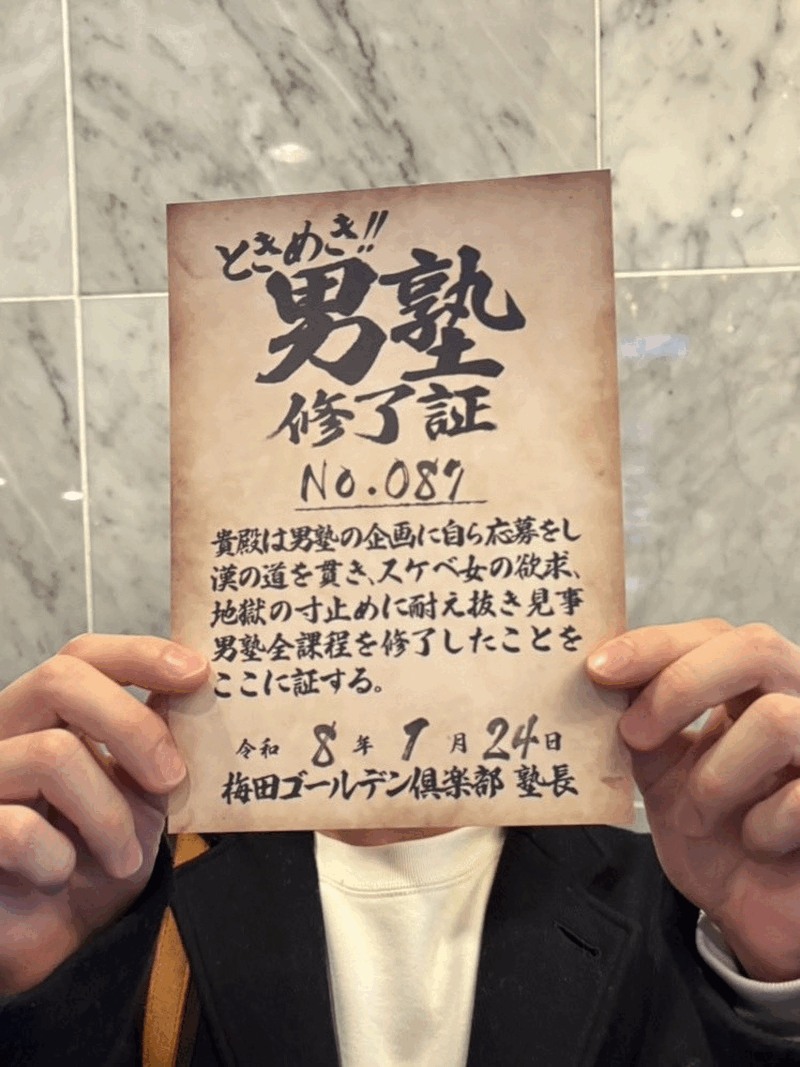 ときめき!!
男塾
修了証
No.087
貴殿は男塾の企画に自ら応募をし
漢の道を貫き、スケベ女の欲求、
地獄の寸止めに耐え抜き見事
男塾全課程を修了したことを
ここに証する。
令和 8 年 1 月 24 日
梅田ゴールデン倶楽部 塾長